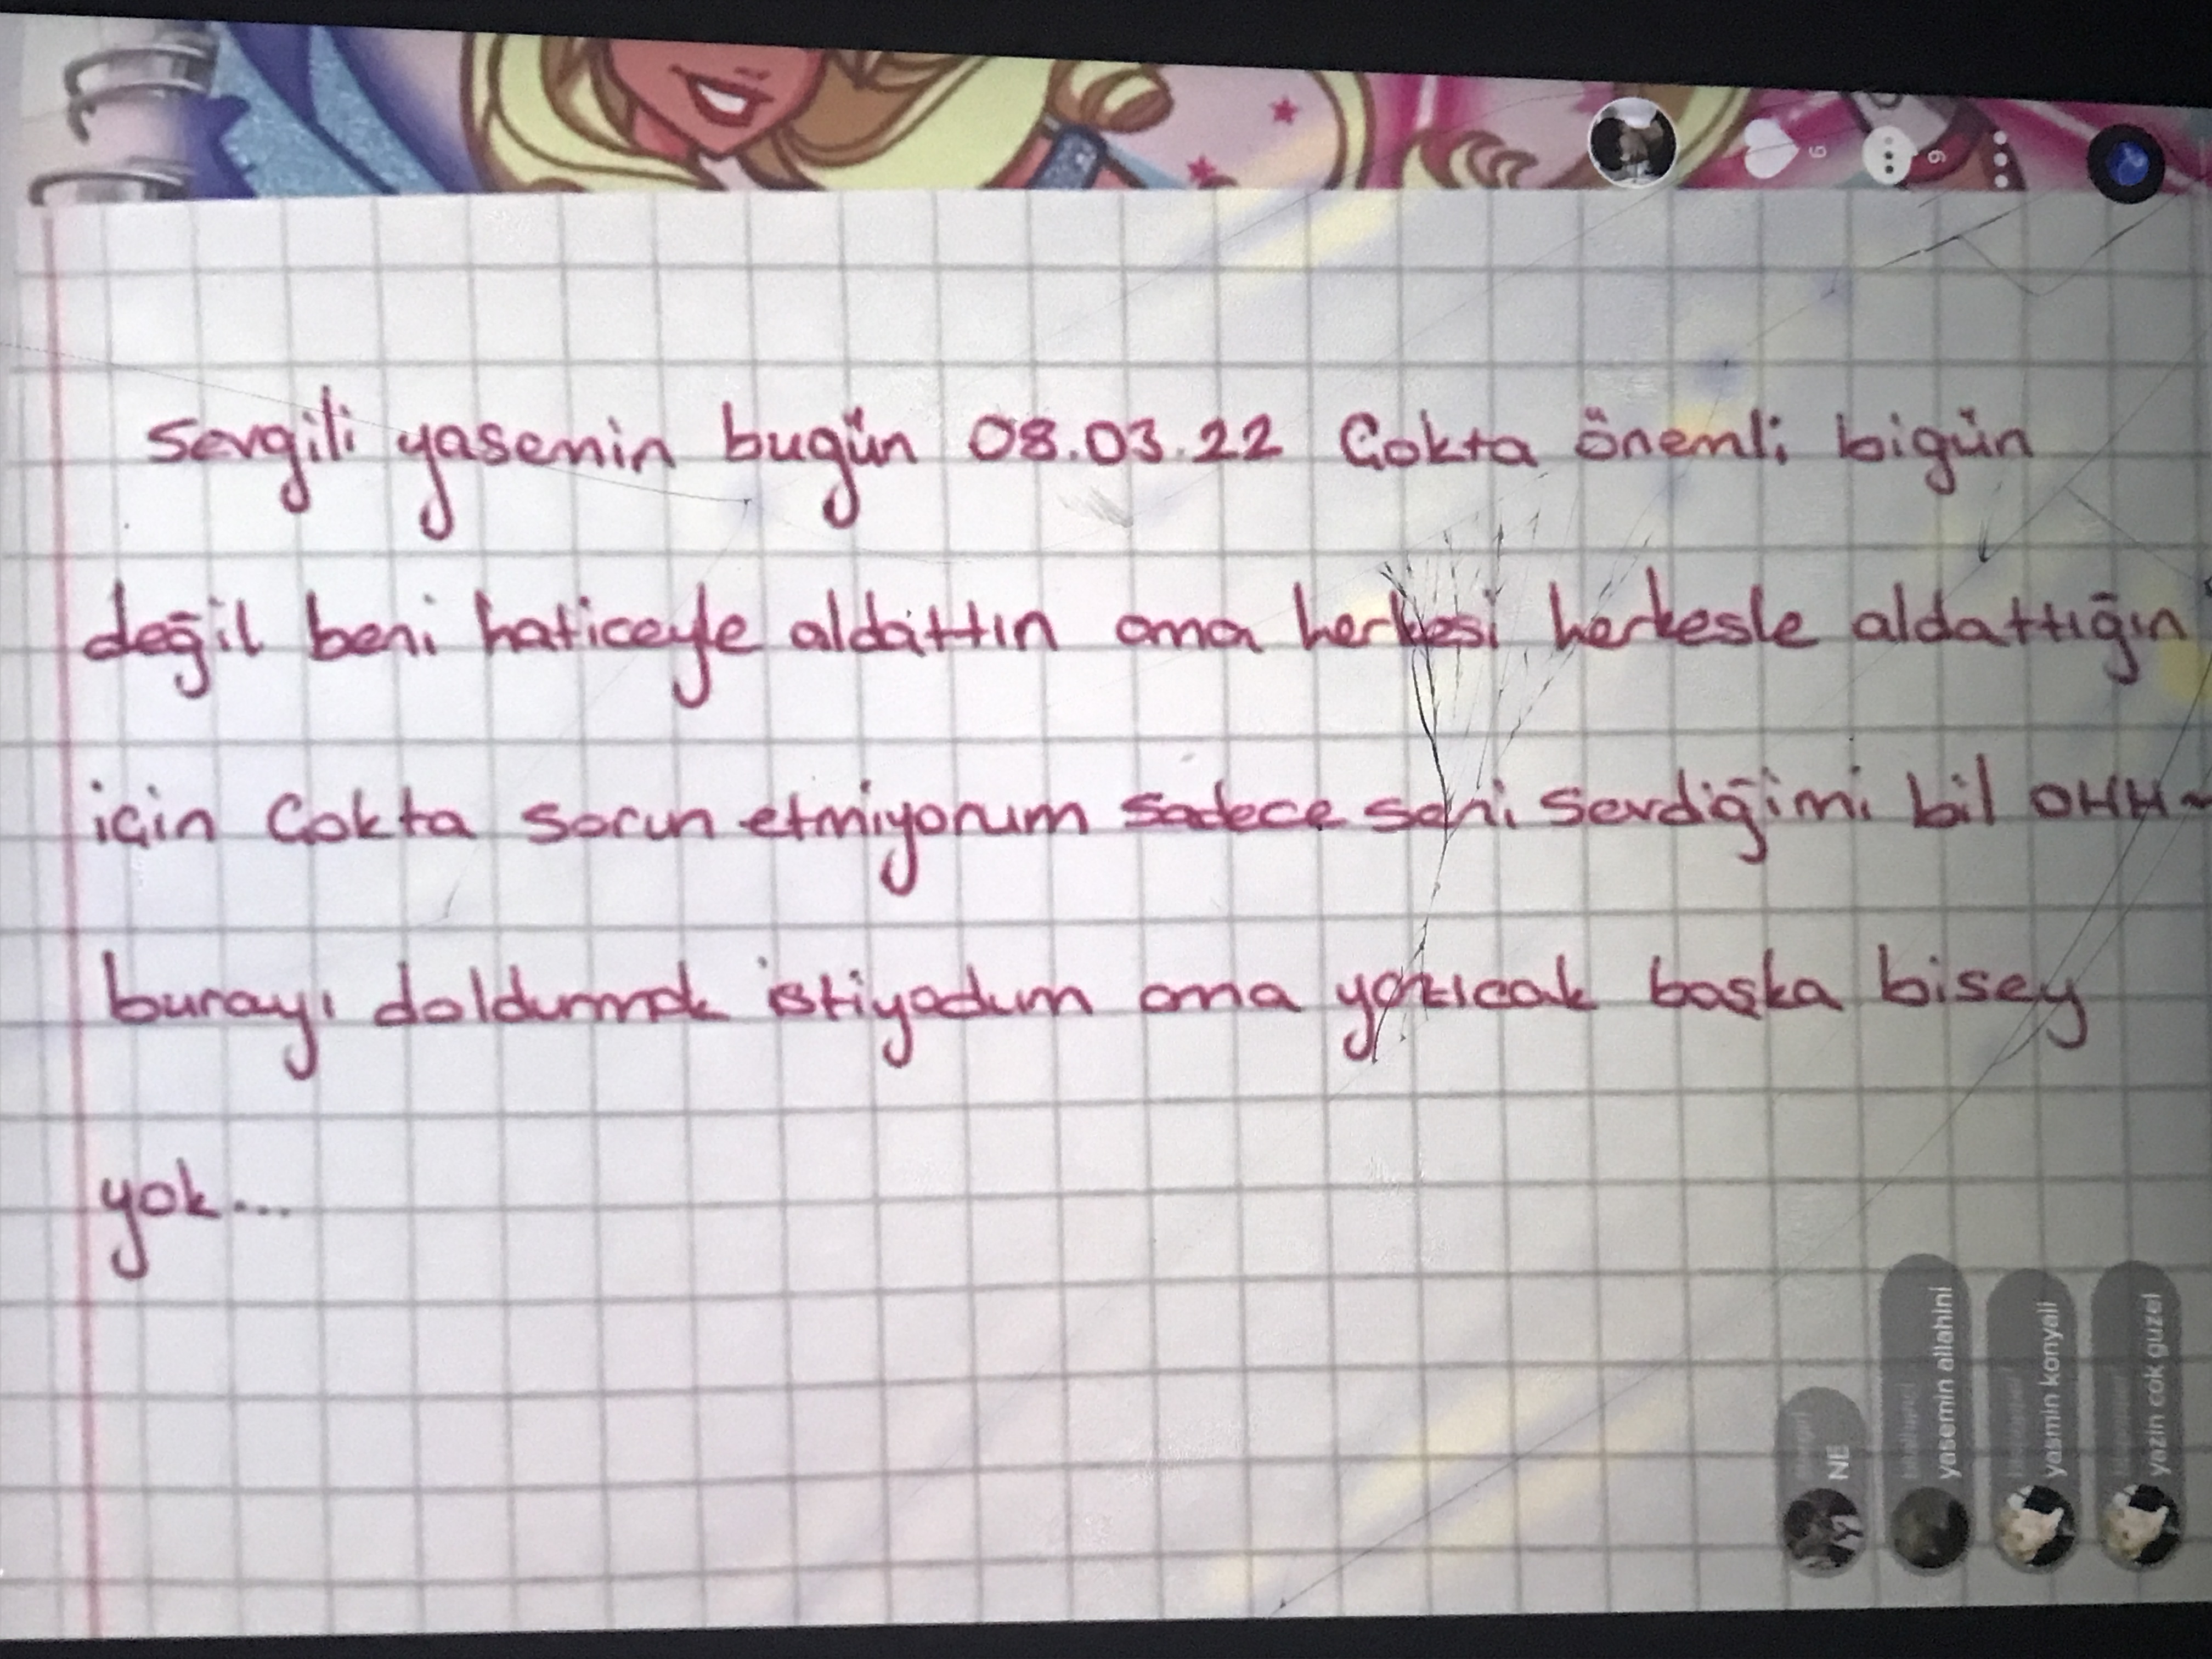 Sevgili yasemin bugün 08.03.22 Çokta önemli bigün
değil beni haticeyle aldattın ama herkesi herkesle aldattığın
için Çokta sorun etmiyorum sadece seni sevdiğimi bil OHH~
burayı doldurmak istiyodum ama yazıcak başka bisey
yok...
9
9
NE
yasemin allahini
yasmin konyali
yazin cok guzel